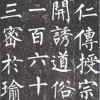 仁傳授宗
開誘道俗
一百六十
三密於瑜